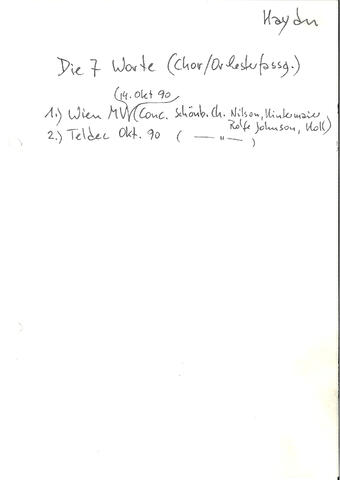 Haydn
Die 7 Worte (Chor/Orchesterfassg.)
(14. Okt 90
1.) Wien MV (Conc. Schönb. Ch. Nilson, Hintermeier
Rolfe Johnson, Holl)
2.) Teldec Okt. 90 ( — " — )